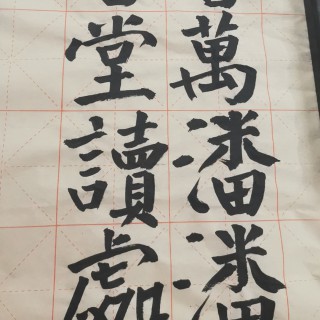 萬潘潘
堂讀處